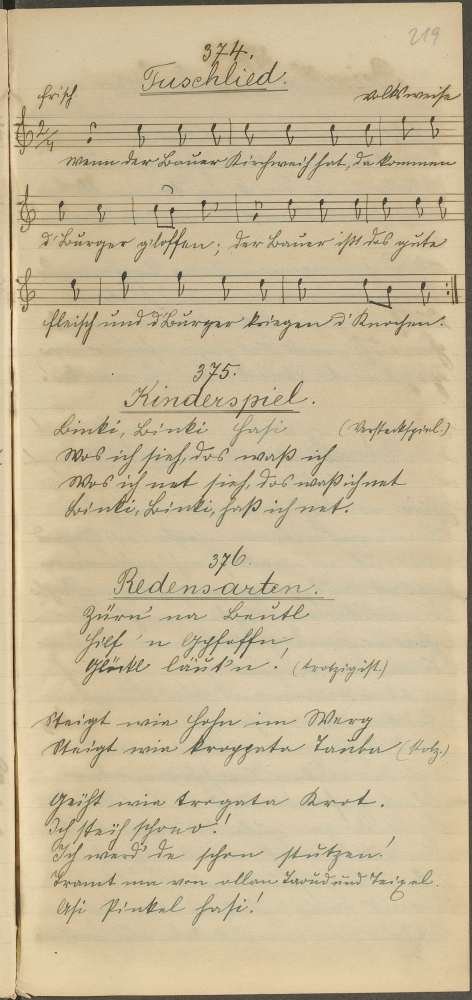 219
374.
Tuschlied.
frisch Volksweise
2/4
wenn der Bauer Kirchweih hat, da kommen
d'Burger g'loffen; der Bauer ißt das gute
fleisch und d'Burger kriegen d'Knochen.
375.
Kinderspiel.
Binki, Binki Hasi (Versteckspiel.)
Wos ich sieh, dos waß ich
Wos ich net sieh, dos waß ich net
Binki, Binki, haß ich net.
376.
Redensarten.
Zürn' na Beutl
Hilf 'n
Glöckl läut'n! (trotzig ist)
Steigt wie Hohn im Werg
Steigt wie kroppata Tauba (stolz.)
Geiht wie trogata Krot.
Ich steih schono!
Ich werd' de schon stutzen!
von ollan und Teixel.
Asi Pinkel Hasi!